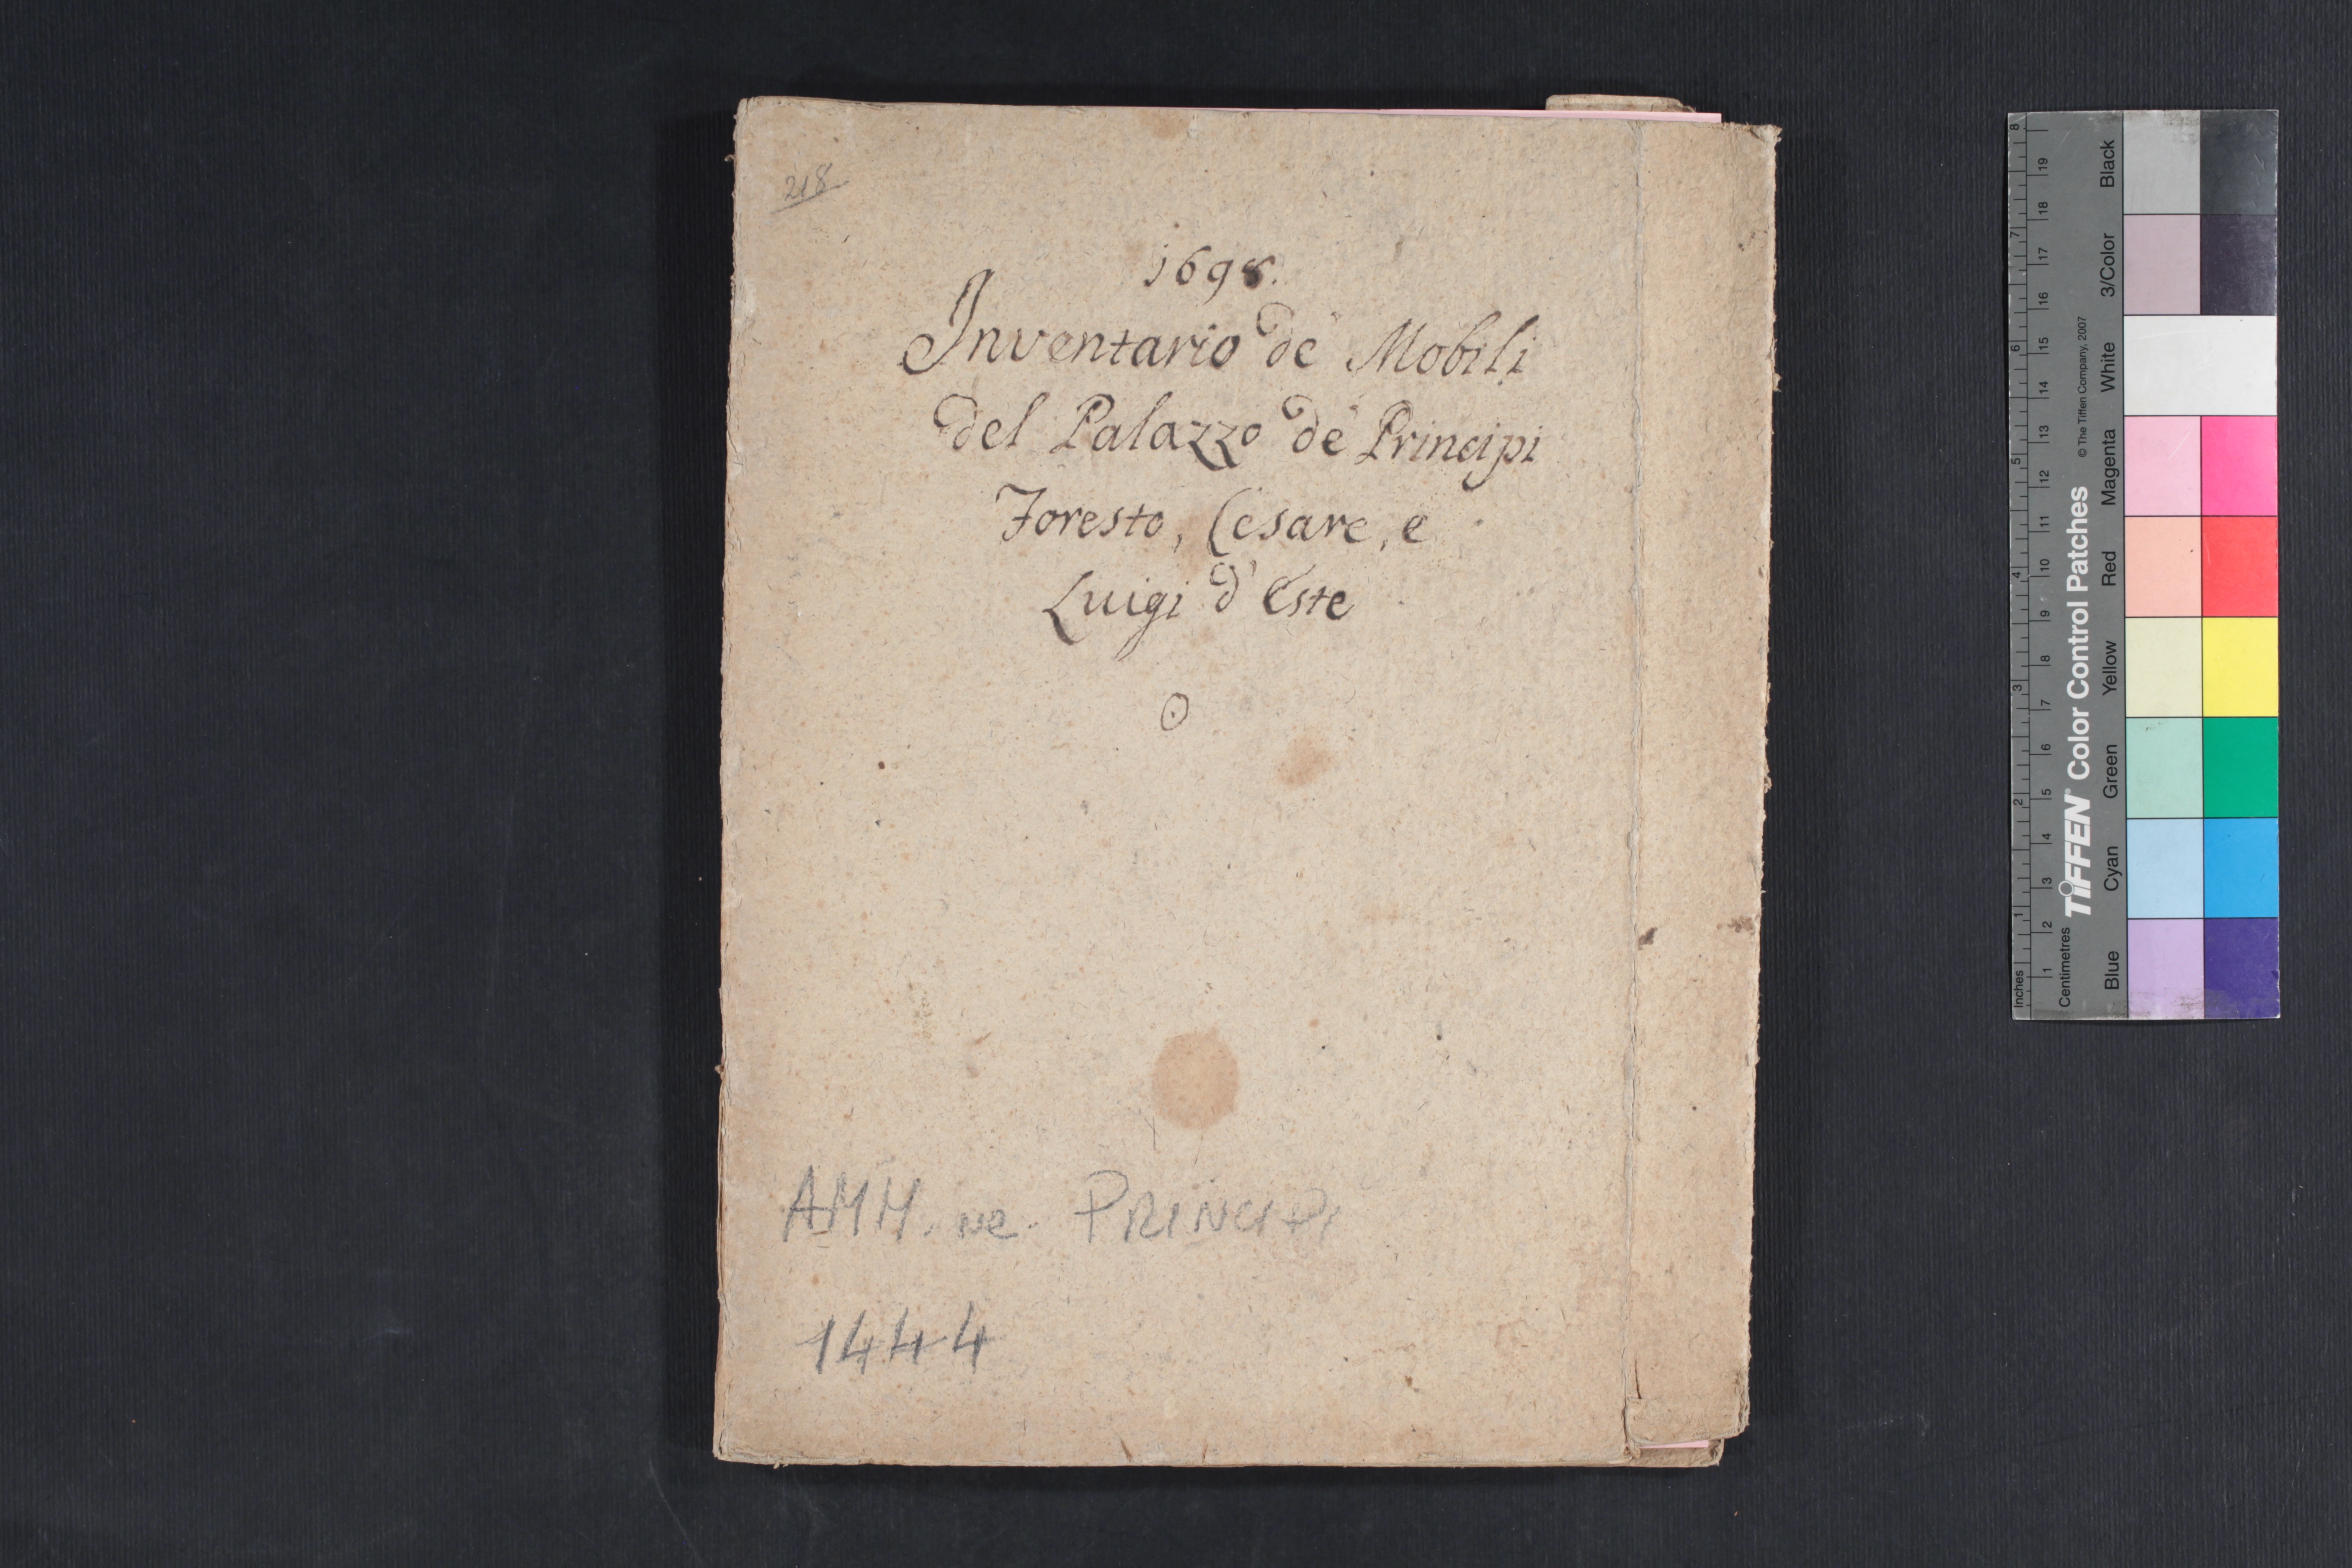 218
1698.
Inventario de' Mobili
del Palazzo de' Principi
Foresto, Cesare, e
Luigi d'Este
PRINCIPI
1444
Inches 1 2 3 4 5 6 7 8
Centimetres 1 2 3 4 5 6 7 8 9 10 11 12 13 14 15 16 17 18 19
TIFFEN® Color Control Patches © The Tiffen Company, 2007
Blue Cyan Green Yellow Red Magenta White 3/Color Black